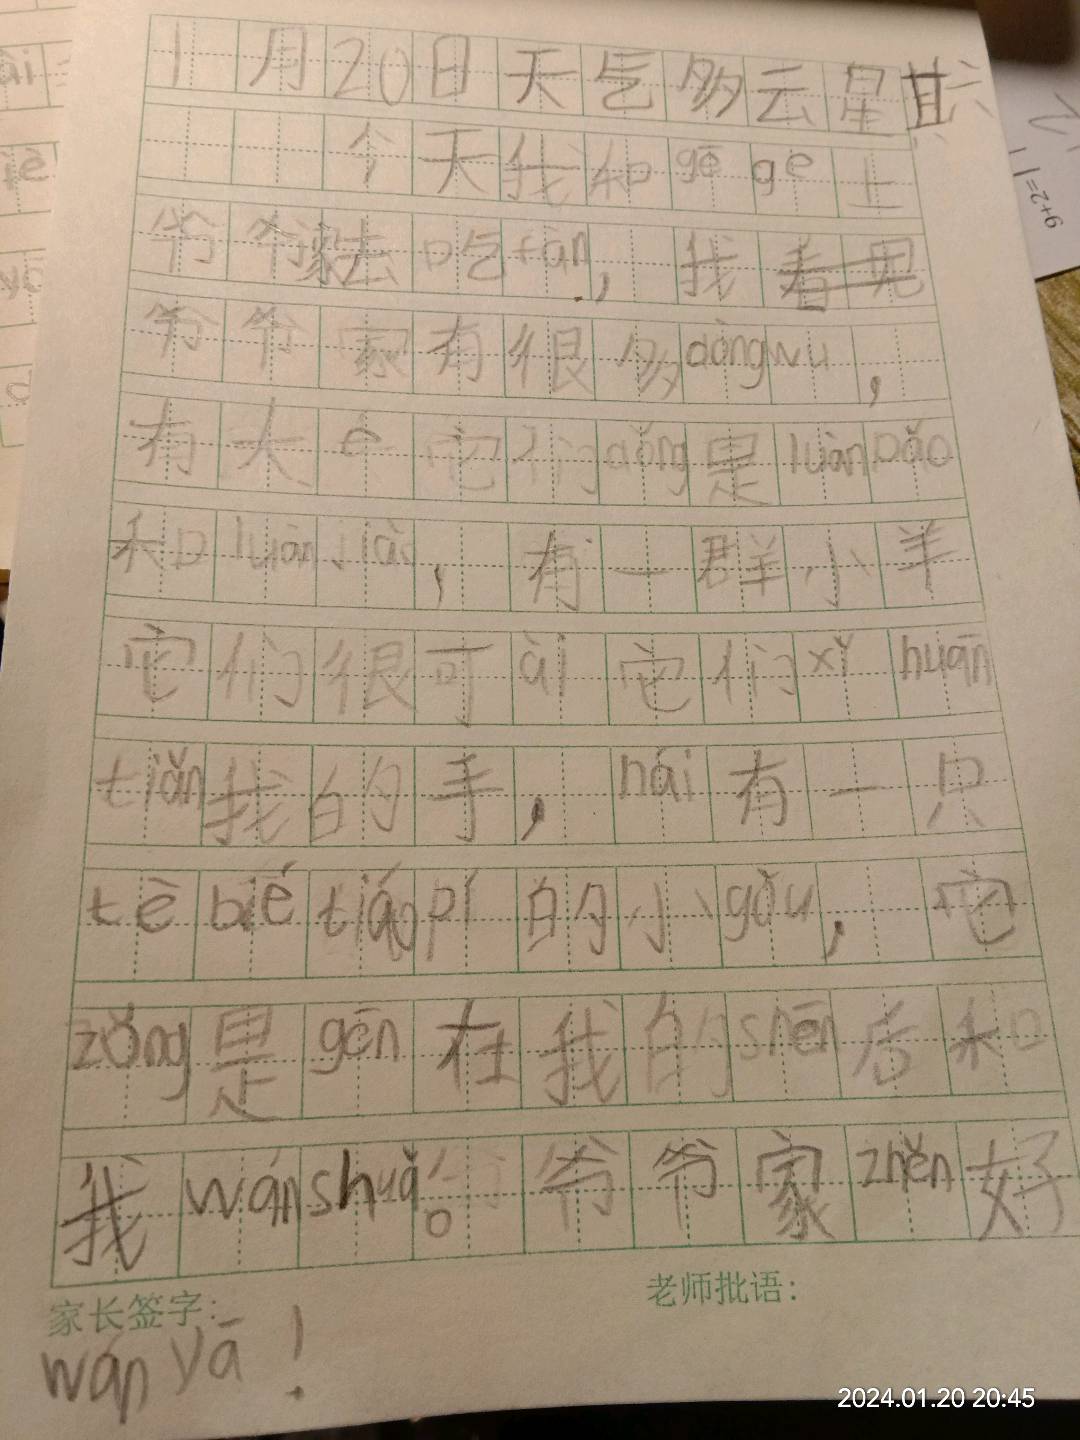 1月20日天气多云星期六
今天我和gē ge上
爷爷家去吃fàn，我看见
爷爷家有很多dòngwu，
有大é它们dǒng是luànpǎo
和luànjiào，有一群小羊
它们很可ài它们xǐ huān
tiǎn我的手，hái有一只
tè bié tiáo pí的小gǒu，它
zǒng是gēn在我的shēn后和
我wánshuǎ。爷爷家zhěn好
家长签字：
老师批语：
wán yā！
9+2=1
2024.01.20 20:45